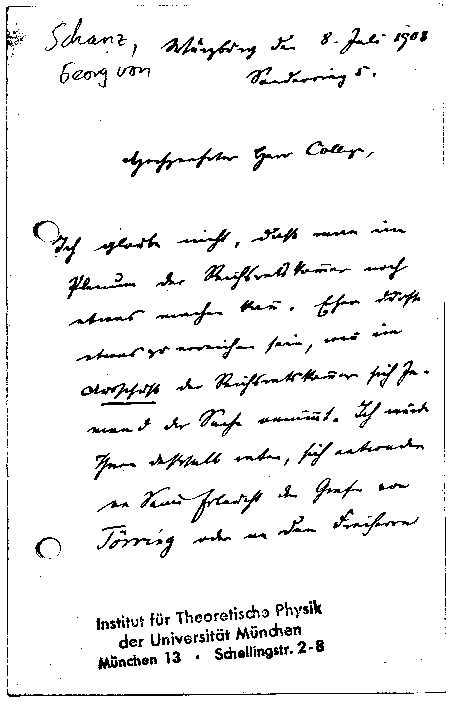 Schanz,
Georg von
Würzburg den 8. Juli 1908
Sanderring 5.
Hochgeehrter Herr College,
Ich glaube nicht, daß man im
Plenum der Reichsratskammer noch
etwas machen kann. Eher dürfte
etwas zu erreichen sein, wenn im
Ausschuß der Reichsratskammer sich Je-
mand der Sache annimmt. Ich würde
Ihnen deßhalb raten, sich entweder
an Seine Erlaucht den Grafen von
Törring oder an den Freiherrn
Institut für Theoretische Physik
der Universität München
München 13 • Schellingstr. 2-8